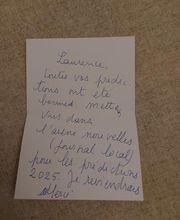 Laurence,
toutes vos prédic
tions ont été
bonnes mettez
vous dans
l'avenir nouvelles
(journal local)
pour les prédictions
2025. je reviendrais
Merci